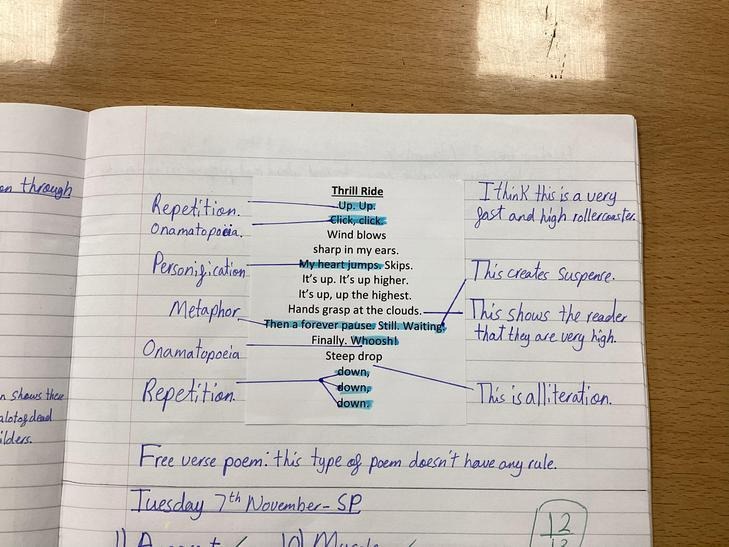 en through
Repetition.
Onamatopoeia.
Personification
Metaphor
Onamatopoeia
Repetition.
Thrill Ride
Up. Up.
Click, click.
Wind blows
sharp in my ears.
My heart jumps. Skips.
It's up. It's up higher.
It's up, up the highest.
Hands grasp at the clouds.
Then a forever pause. Still. Waiting.
Finally. Whoosh!
Steep drop
down,
down,
down.
I think this is a very
fast and high rollercoaster.
This creates suspense.
This shows the reader
that they are very high.
This is alliteration.
n shows there
alot of dead
ilders.
Free verse poem: this type of poem doesn't have any rule.
Tuesday 7th November - SP
12